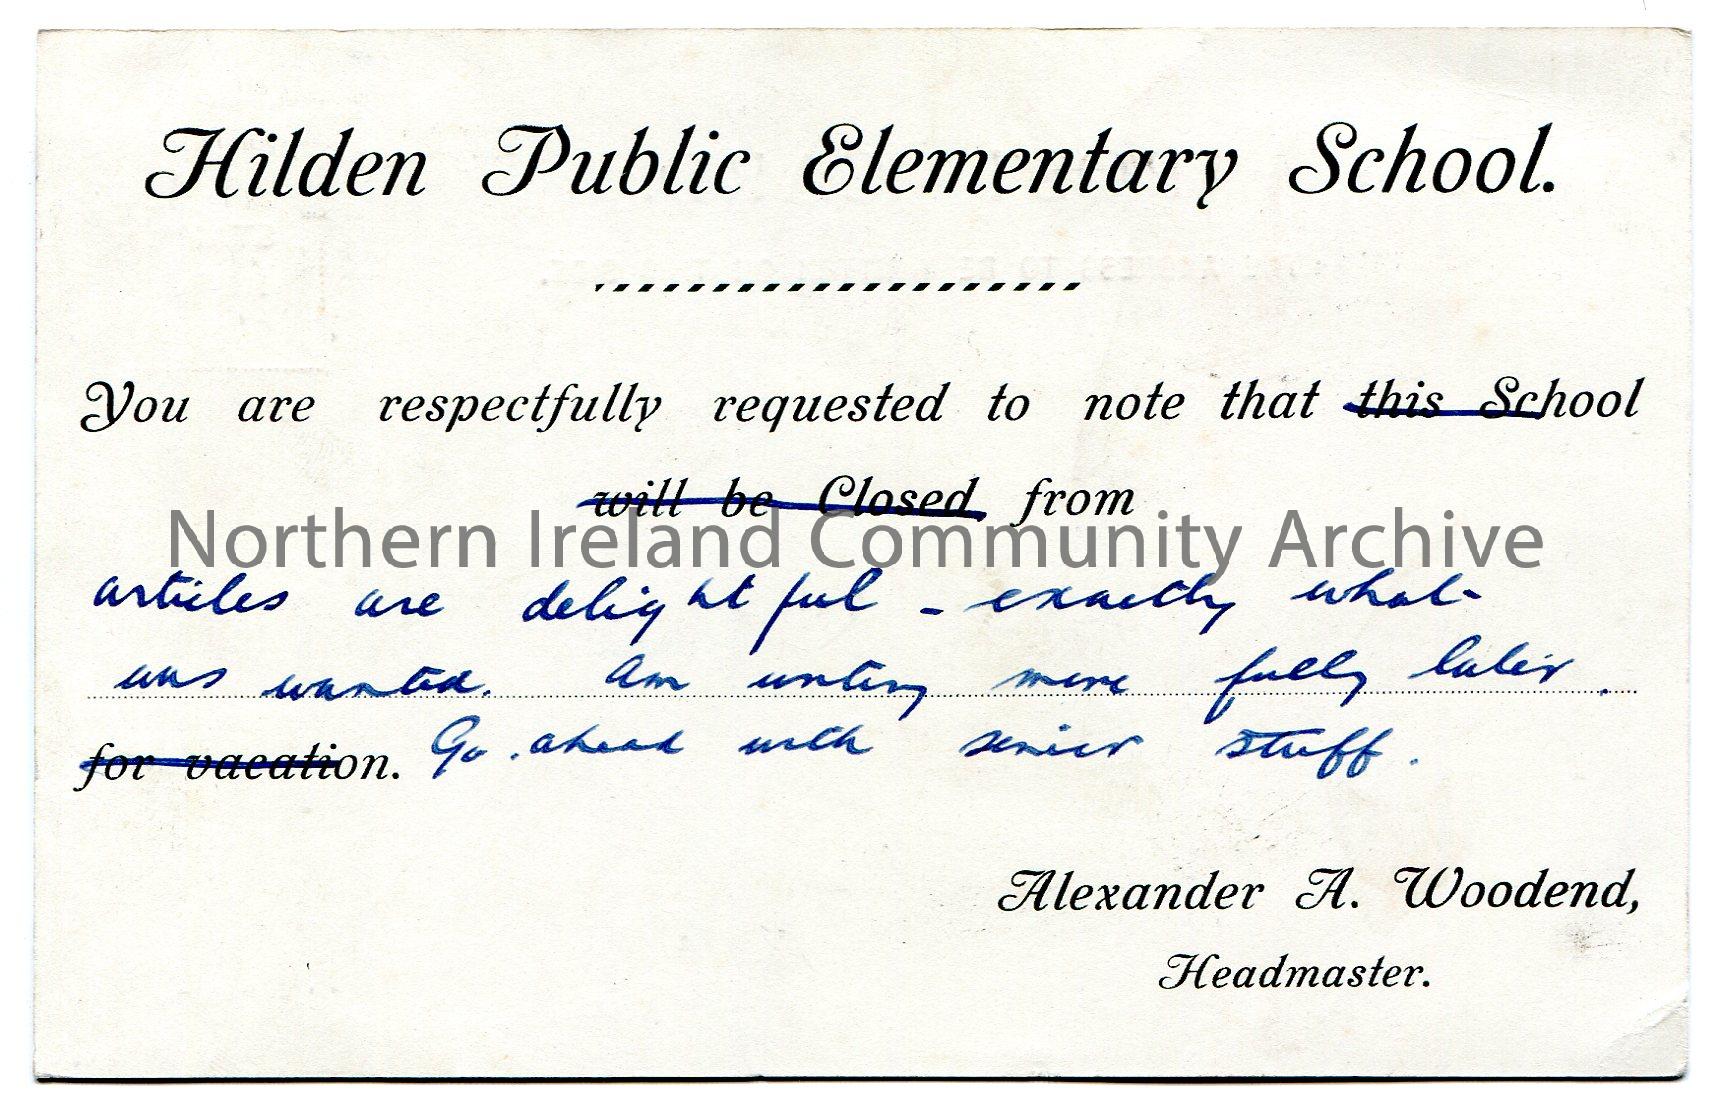 Hilden Public Elementary School.
You are respectfully requested to note that this School
will be Closed from
Northern Ireland Community Archive
articles are delightful - exactly what
was wanted. Am writing more fully later.
for vacation. Go ahead with senior stuff.
Alexander A. Woodend,
Headmaster.